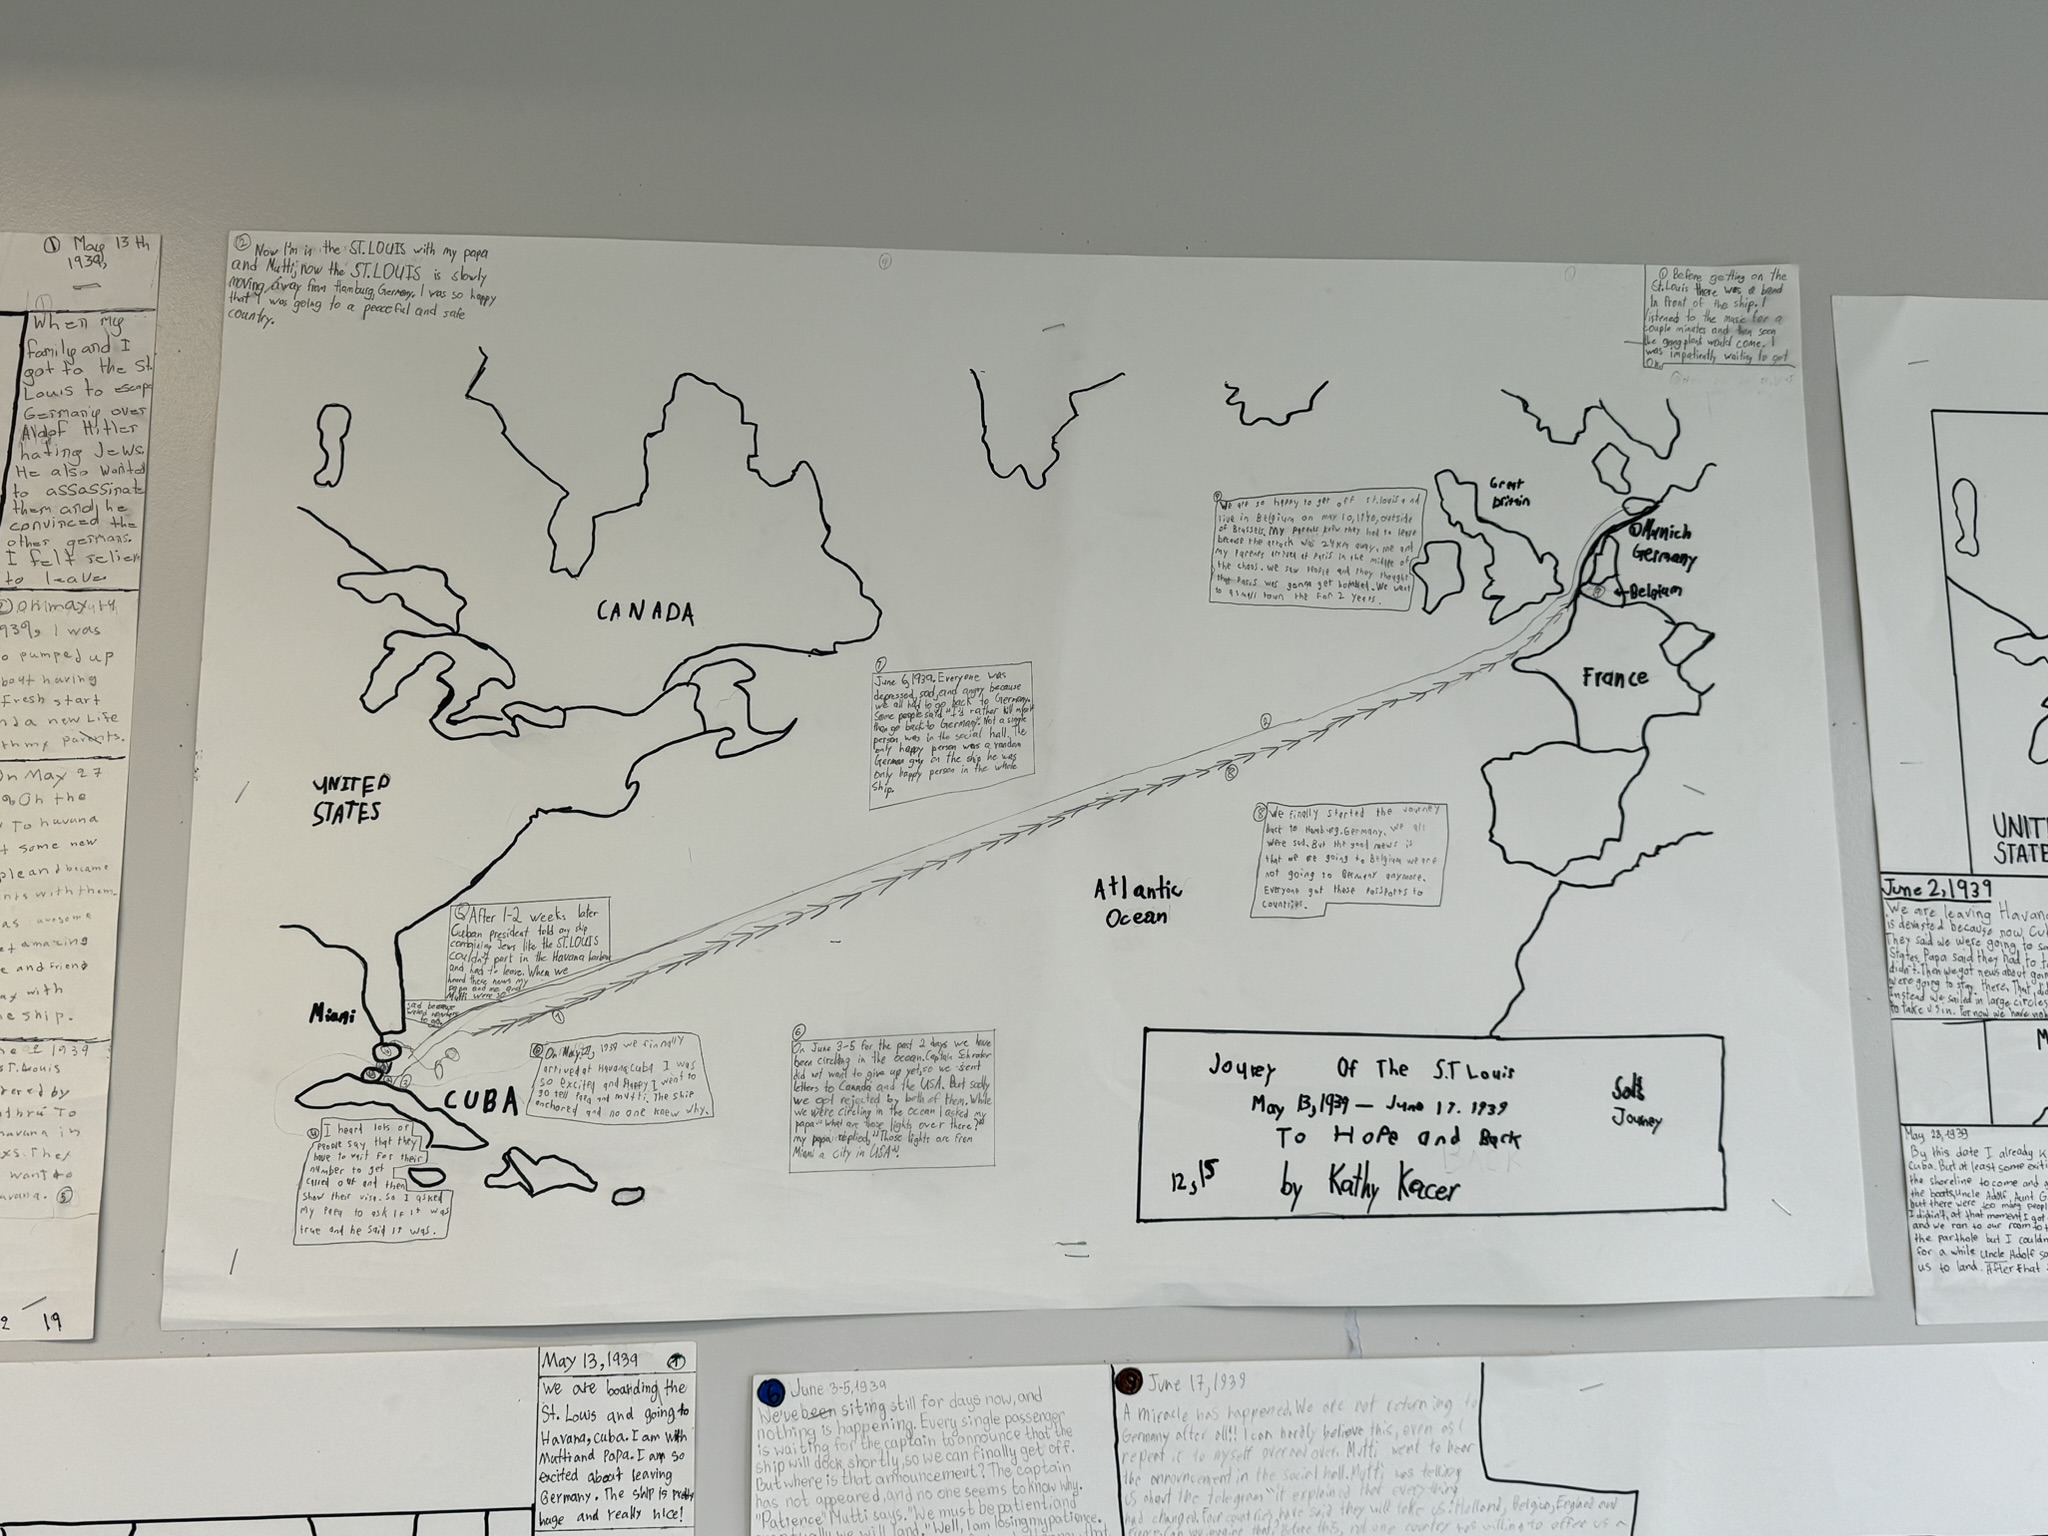 ① May 13th
1939,
①
When my
family and I
got to the St.
Louis to escape
Germany over
Aldof Hitler
hating Jews.
He also wanted
to assassinate
them and he
convinced the
other germans.
I felt
to leave
1939, I was
pumped up
about having
fresh start
and a new Life
with my parents.
On May 27
On the
To havana
some new
became
with them.
as awesome
amazing
and Friend
with
ship.
1939
ST. Louis
To
havana in
They
want to
havana. ⑤
19
② Now I'm in the ST.LOUIS with my papa
and Mutti, now the ST.LOUIS is slowly
moving away from Hamburg, Germany. I was so happy
that I was going to a peaceful and safe
country.
① Before getting on the
St.Louis there was a band
In front of the ship. I
listened to the music for a
couple minutes and then soon
the gangplank would come. I
was impatiently waiting to get
On.
CANADA
UNITED
STATES
Miami
CUBA
Atlantic
Ocean
Great
brittin
①Munich
Germany
←Belgium
France
⑨
We are so happy to get off st.louis and
live in Belgium on may 10, 1940, outside
of Brussels. My parents knew they had to leave
because the attack was 24km away. me and
my Parents arrived at Paris in the middle of
the chaos. We saw and they thought
that Paris was gonna get bombed. We went
to a small town the For 2 years.
⑦
June 6, 1939. Everyone was
depressed, sad, and angry because
we all had to go back to Germany.
Some people said "I'd rather kill myself
than go back to Germany". Not a single
person was in the social hall. The
only happy person was a random
German guy on the ship he was
only happy person in the whole
Ship.
②
⑧
⑧ We finally started the Journey
back to Hamburg, Germany. We all
were sad. But the good news is
that we are going to Belgium we are
not going to Germany anymore.
Everyone got these passports to
countries.
⑤ After 1-2 weeks later
Cuban president told any ship
containing Jews like the ST.LOUIS
couldn't port in the Havana harbor
and had to leave. When we
heard these news my
papa and me and
Mutti were so
sad because
we had nowhere
to go.
⑦
③ On May 27, 1939 we finally
arrived at Havana, Cuba I was
so excited and Happy I went to
go tell Papa and mutti. The ship
anchored and no one knew why.
④ I heard lots of
People say that they
have to wait for their
number to get
called out and then
Show their visa. So I asked
My Papa to ask if it was
true and he said it was.
⑥
On June 3-5 for the past 2 days we have
been circling in the ocean. Captain Schroder
did not want to give up yet, so we sent
letters to Canada and the USA. But sadly
we got rejected by both of them. While
we were circling in the ocean I asked my
papa "What are those lights over there?"
my papa replied, "Those lights are from
Miami a city in USA".
Jourey Of The S.T Louis
May 13, 1939 — June 17. 1939
To Hope and Back
by Kathy Kacer
12, 15
Sol's
Journey
UNIT
STATE
June 2, 1939
We are leaving Havana
is devasted because now Cu
They said we were going to sa
States, Papa said they had to t
didn't. Then we got news about going
were going to stay there. That did
Instead we sailed in large circles
to take us in. For now we have no
May 28, 1939
By this date I already k
Cuba. But at least some exiti
the shoreline to come and g
the boats, Uncle Adolf, Aunt G
but there were too many peopl
I didn't, at that moment I got
and we ran to our room to t
the porthole but I couldn
for a while Uncle Adolf sa
us to land. After that
May 13, 1939 ①
We are boarding the
St. Louis and going to
Havana, Cuba. I am with
Mutti and Papa. I am so
excited about leaving
Germany. The ship is pretty
huge and really nice!
6 June 3-5, 1939
We've been siting still for days now, and
nothing is happening. Every single passenger
is waiting for the captain to announce that the
ship will dock shortly, so we can finally get off.
But where is that announcement? The captain
has not appeared, and no one seems to know why.
"Patience" Mutti says. "We must be patient, and
eventually we will land." "Well, I am losing my patience.
9 June 17, 1939
A miracle has happened. We are not returning to
Germany after all!! I can hardly believe this, even as I
repeat it to myself over and over. Mutti went to hear
the announcement in the social hall. Mutti was telling
us about the telegram "it explained that everything
had changed. Four countries have said they will take us: Holland, Belgium, England and